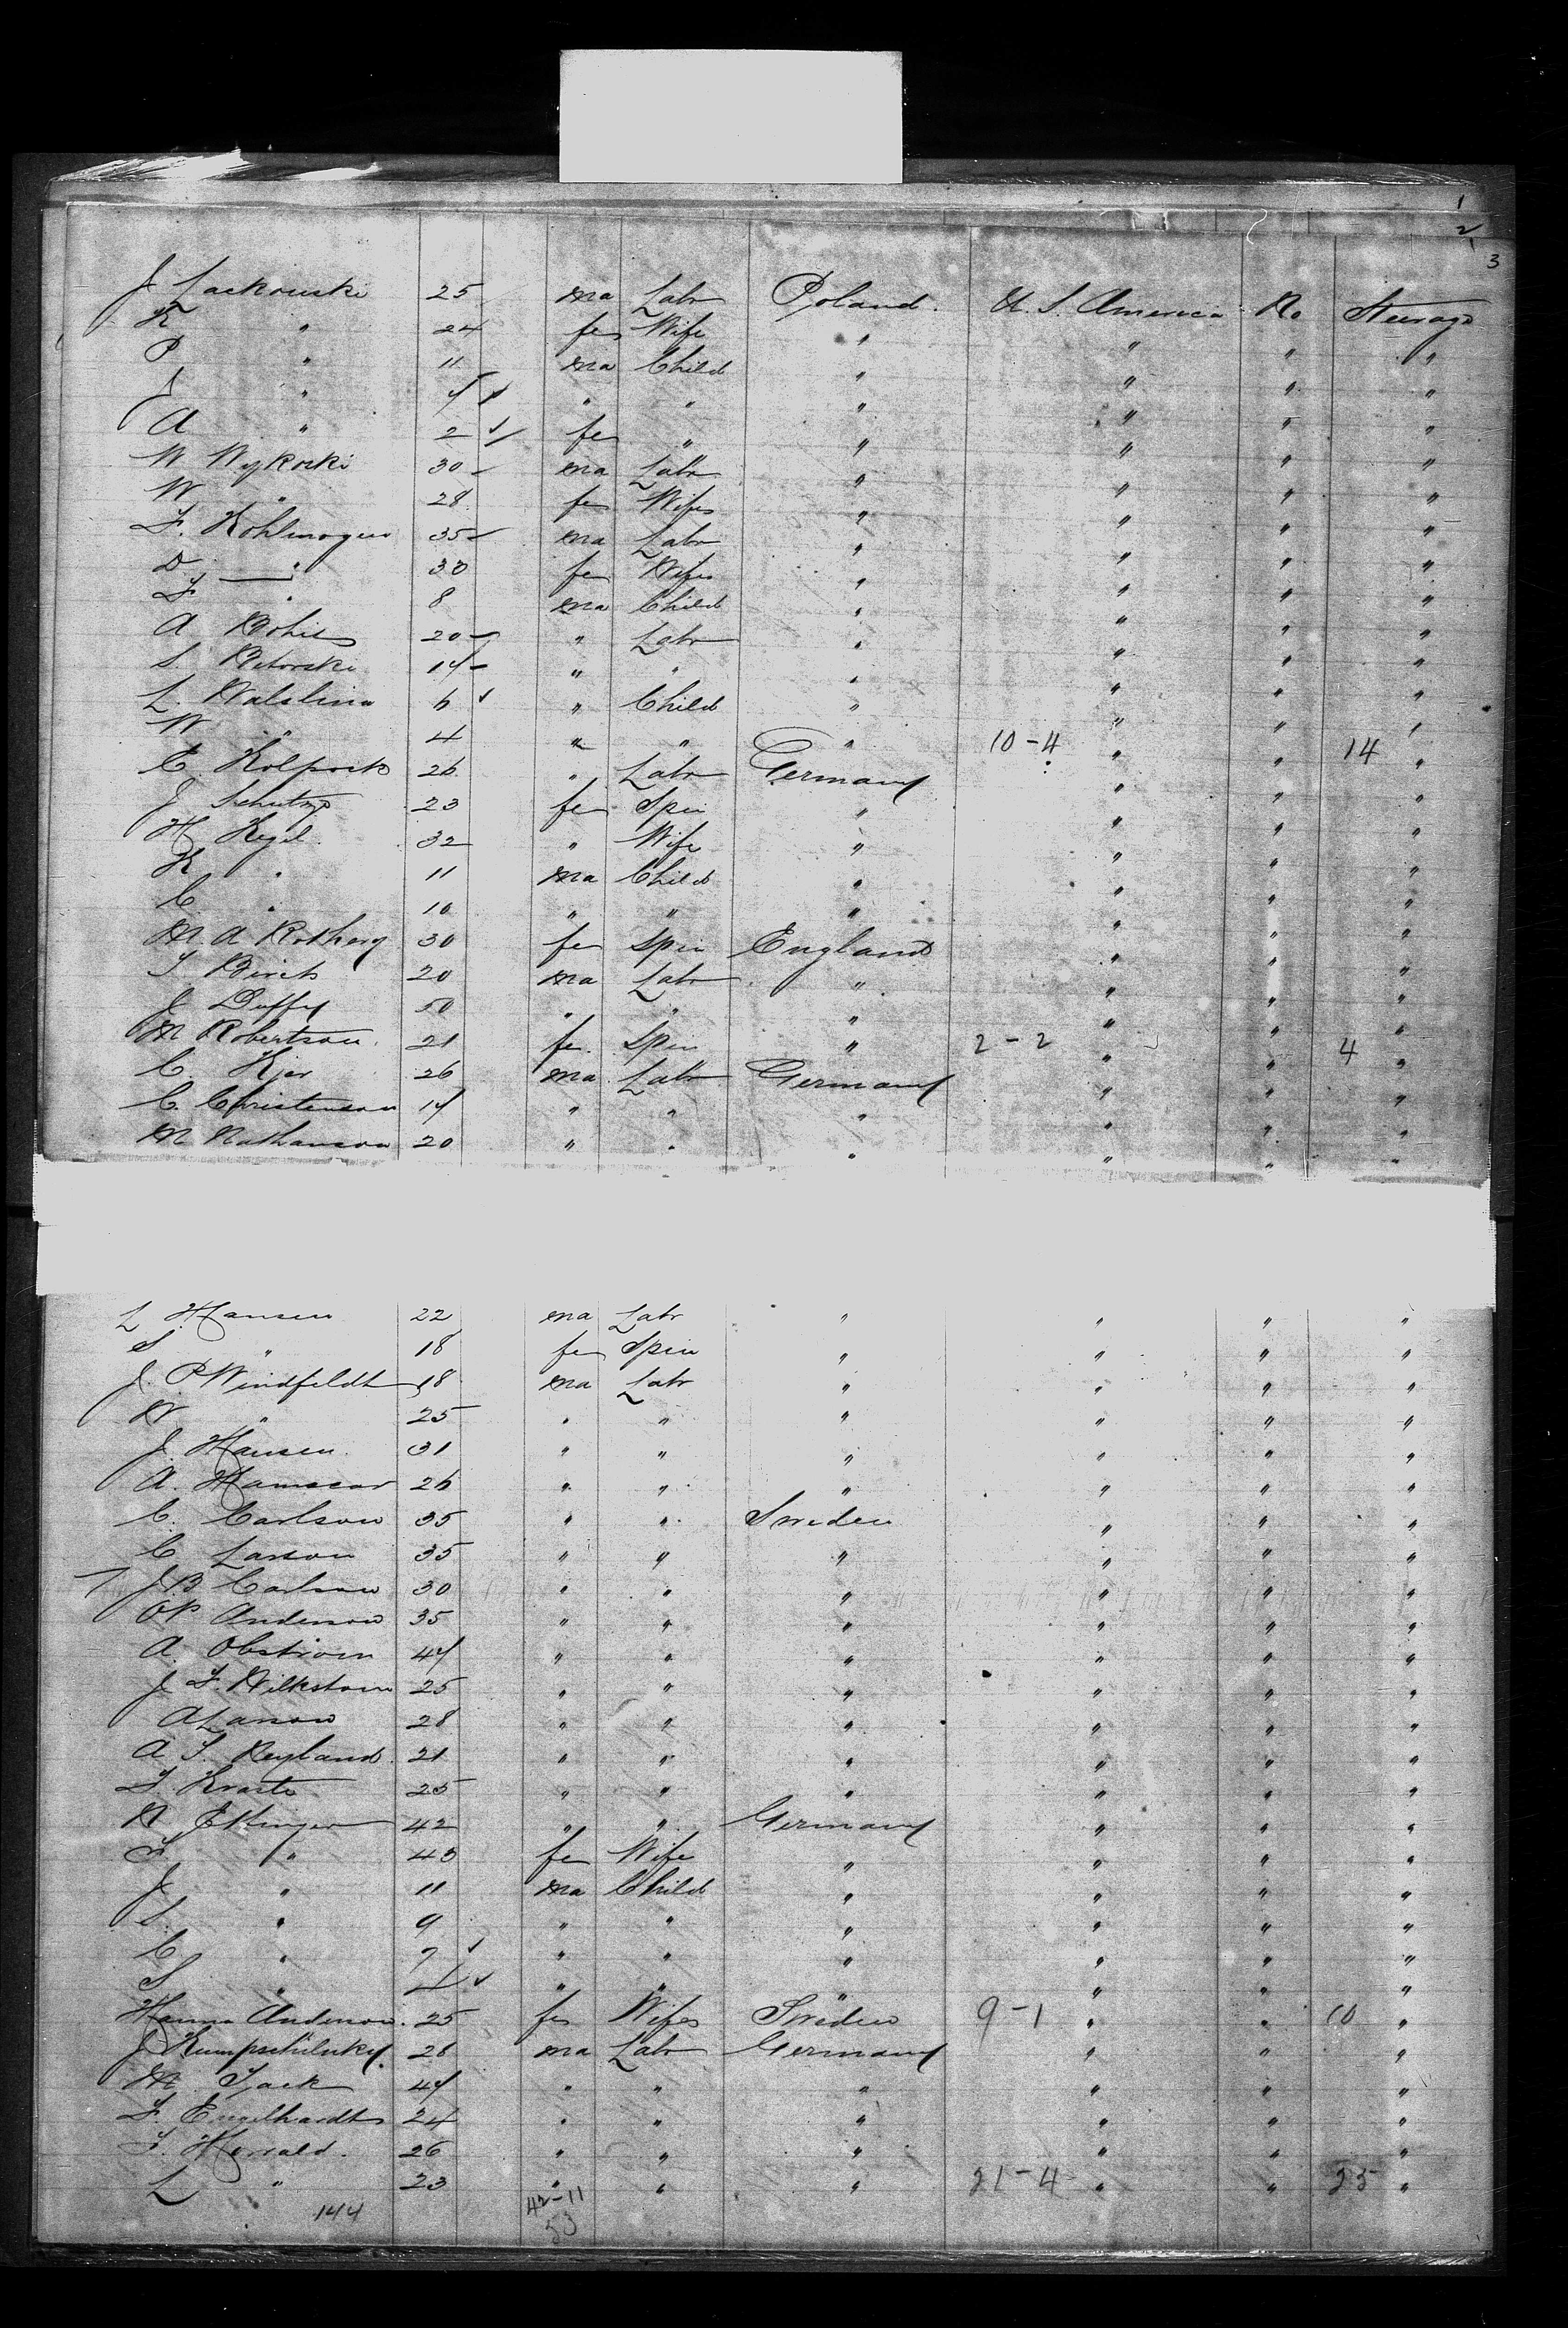 1
2
3
J Lackowski 25 ma Labr Poland. U. S. America No Steerage
K " 24 fe Wife " " " "
P " 11 ma Child " " " "
J " 4 " " " " " "
A " 2 fe " " " " "
W Wykoski 30 ma Labr " " " "
W " 28 fe Wife " " " "
F. 35 ma Labr " " " "
D " 30 fe Wife " " " "
F " 8 ma Child " " " "
A 20 " Labr " " " "
S 14 " " " " " "
L. 6 " Child " " " "
W " 4 " " " 10-4 " " 14 "
C. 26 " Labr Germany " " "
J 23 fe Spin " " " "
H Kegel 32 " Wife " " " "
K " 11 ma Child " " " "
C " 10 " " " " " "
M. A 30 fe Spin England " " "
S Birch 20 ma Labr " " " "
J Duffy 50 " " " " " "
M Robertson 21 fe Spin " 2-2 " " 4 "
C. Kjer 26 ma Labr Germany " " "
C. Christensen 14 " " " " " "
M Nathanson 20 " " " " " "
L Hansen 22 ma Labr " " " "
S " 18 fe Spin " " " "
J. P Windfeldt 18 ma Labr " " " "
N " 25 " " " " " "
J. Hansen 31 " " " " " "
A. 26 " " " " " "
C. Carlson 35 " " Sweden " " "
C Larson 35 " " " " " "
J. B Carlson 30 " " " " " "
O P Anderson 35 " " " " " "
A. Obstrom 44 " " " " " "
J F. Wilkstom 25 " " " " " "
A Larson 28 " " " " " "
A S. 21 " " " " " "
F. 25 " " " " " "
N Ettinger 42 " " Germany " " "
F " 43 fe Wife " " " "
J " 11 ma Child " " " "
S. " 9 " " " " " "
C " 7 " " " " " "
S " 4 " " " " " "
Hanna Anderson 25 fe Wife Sweden 9-1 " " 10 "
J 28 ma Labr Germany " " "
M 44 " " " " " "
F. Engelhardt 24 " " " " " "
F. Herrald 26 " " " " " "
L " 23 " " " 21-4 " " 25 "
144 42-11
53